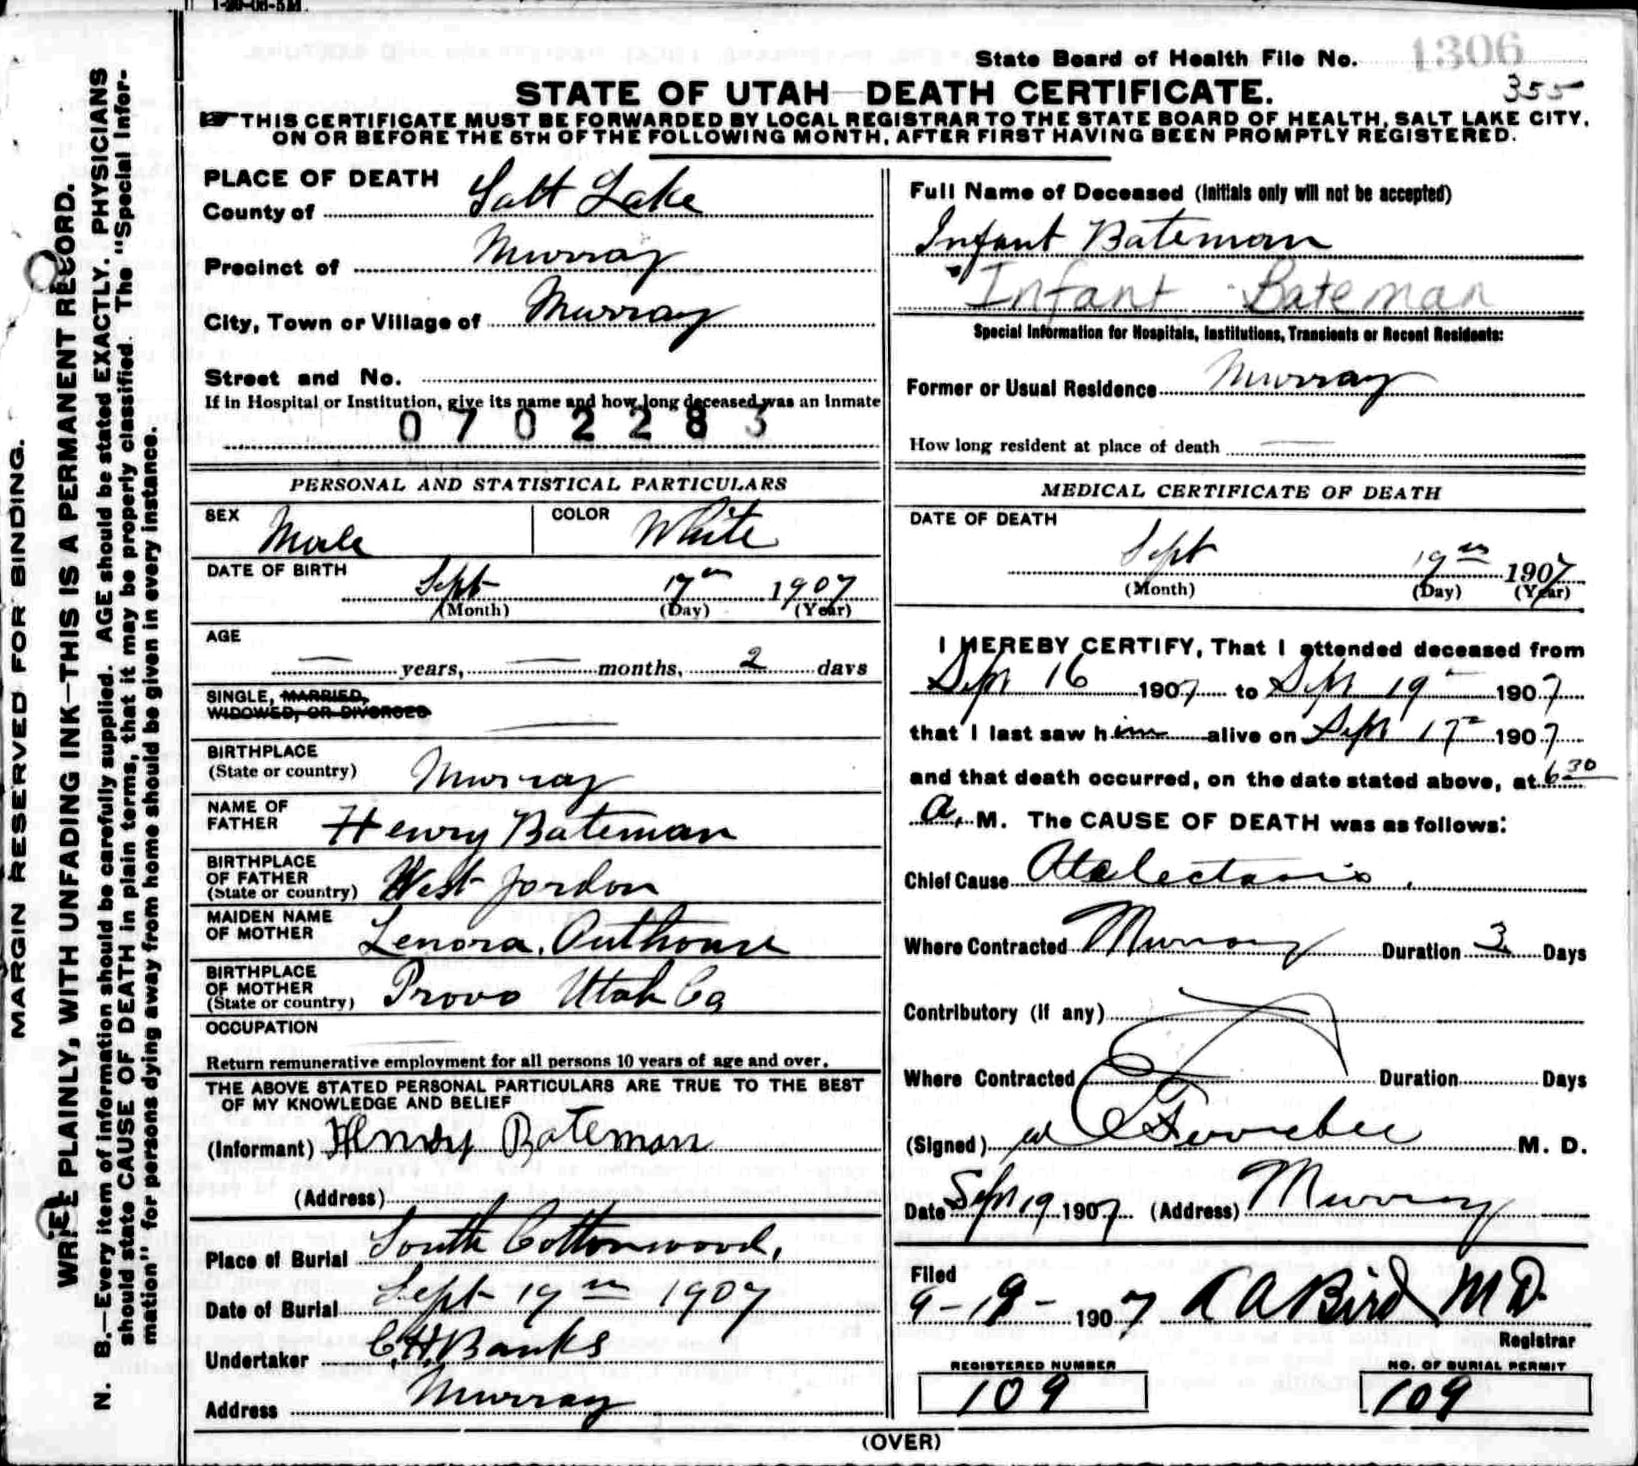 1-20-08-5M.
MARGIN RESERVED FOR BINDING.
WRITE PLAINLY, WITH UNFADING INK—THIS IS A PERMANENT RECORD.
N. B.—Every item of information should be carefully supplied. AGE should be stated EXACTLY. PHYSICIANS
should state CAUSE OF DEATH in plain terms, that it may be properly classified. The "Special Infor-
mation" for persons dying away from home should be given in every instance.
State Board of Health File No. 1306
355
STATE OF UTAH—DEATH CERTIFICATE.
THIS CERTIFICATE MUST BE FORWARDED BY LOCAL REGISTRAR TO THE STATE BOARD OF HEALTH, SALT LAKE CITY,
ON OR BEFORE THE 5TH OF THE FOLLOWING MONTH, AFTER FIRST HAVING BEEN PROMPTLY REGISTERED.
PLACE OF DEATH
County of Salt Lake
Precinct of Murray
City, Town or Village of Murray
Street and No.
If in Hospital or Institution, give its name and how long deceased was an Inmate
0702283
PERSONAL AND STATISTICAL PARTICULARS
SEX Male COLOR White
DATE OF BIRTH
Sept 17th 1907
(Month) (Day) (Year)
AGE
— years, — months, 2 days
SINGLE, MARRIED,
WIDOWED, OR DIVORCED
BIRTHPLACE
(State or country) Murray
NAME OF
FATHER Henry Bateman
BIRTHPLACE
OF FATHER
(State or country) West Jordon
MAIDEN NAME
OF MOTHER Lenora
BIRTHPLACE
OF MOTHER
(State or country) Provo Utah Co
OCCUPATION
Return remunerative employment for all persons 10 years of age and over.
THE ABOVE STATED PERSONAL PARTICULARS ARE TRUE TO THE BEST
OF MY KNOWLEDGE AND BELIEF
(Informant) Henry Bateman
(Address)
Place of Burial South Cottonwood,
Date of Burial Sept 19th 1907
Undertaker C.H. Banks
Address Murray
Full Name of Deceased (Initials only will not be accepted)
Infant Bateman
Infant Bateman
Special Information for Hospitals, Institutions, Transients or Recent Residents:
Former or Usual Residence Murray
How long resident at place of death —
MEDICAL CERTIFICATE OF DEATH
DATE OF DEATH
Sept 19th 1907
(Month) (Day) (Year)
I HEREBY CERTIFY, That I attended deceased from
Sept 16 1907 to Sept 19 1907
that I last saw him alive on Sept 17 1907
and that death occurred, on the date stated above, at 6 30
a. M. The CAUSE OF DEATH was as follows:
Chief Cause Atalectasis
Where Contracted Murray Duration 3 Days
Contributory (if any)
Where Contracted Duration Days
(Signed) M. D.
Date Sept 19 1907 (Address) Murray
Filed
9-19- 1907 A Bird M D.
Registrar
REGISTERED NUMBER NO. OF BURIAL PERMIT
109 109
(OVER)